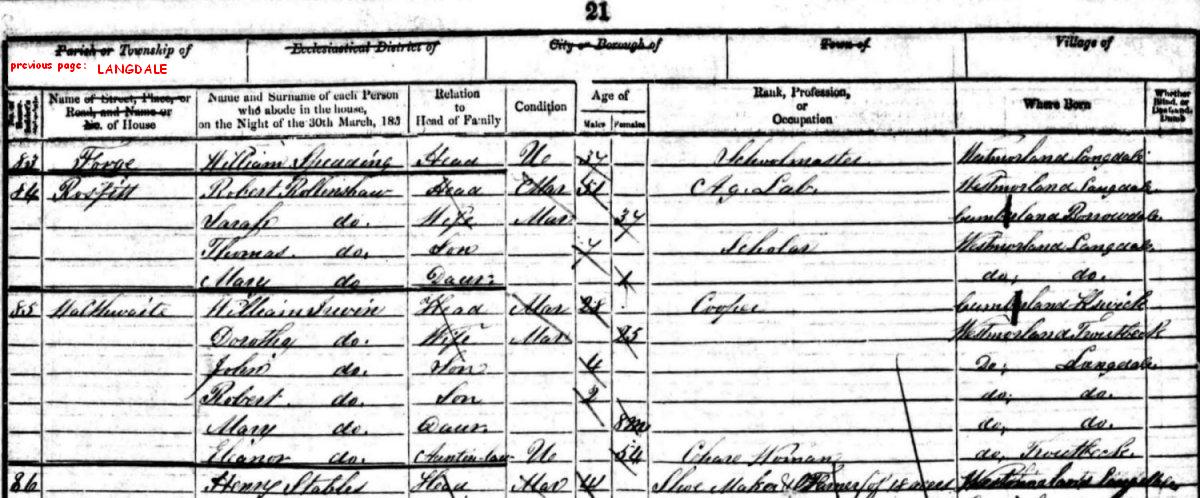 21
Parish or Township of Ecclesiastical District of City or Borough of Town of Village of
previous page: LANGDALE
Name of Street, Place, or Road, and Name or No. of House
Name and Surname of each Person who abode in the house, on the Night of the 30th March, 1851
Relation to Head of Family
Condition
Age of
Males Females
Rank, Profession, or Occupation
Where Born
Whether Blind, or Deaf-and-Dumb
83 Forge William Head Un Schoolmaster Westmorland Langdale
84 Robert Head Mar 51 Ag. Lab. Westmorland Langdale
Sarah do. Wife Mar 34 Cumberland Borrowdale
Thomas do. Son 7 Scholar Westmorland Langdale
Mary do Daur. do, do.
85 Walthwaite William Irwin Head Mar 28 Cooper Cumberland Keswick
Dorothy do. Wife Mar 25 Westmorland Troutbeck
John do. Son 4 Do, Langdale
Robert do. Son 2 do, do.
Mary do. Daur. 8m do, do.
Eleanor do. Aunt in-law Un 54 Chare Woman do, Troutbeck
86 Henry Stables Head Mar Shoe Maker & Farmer (of 18 acres